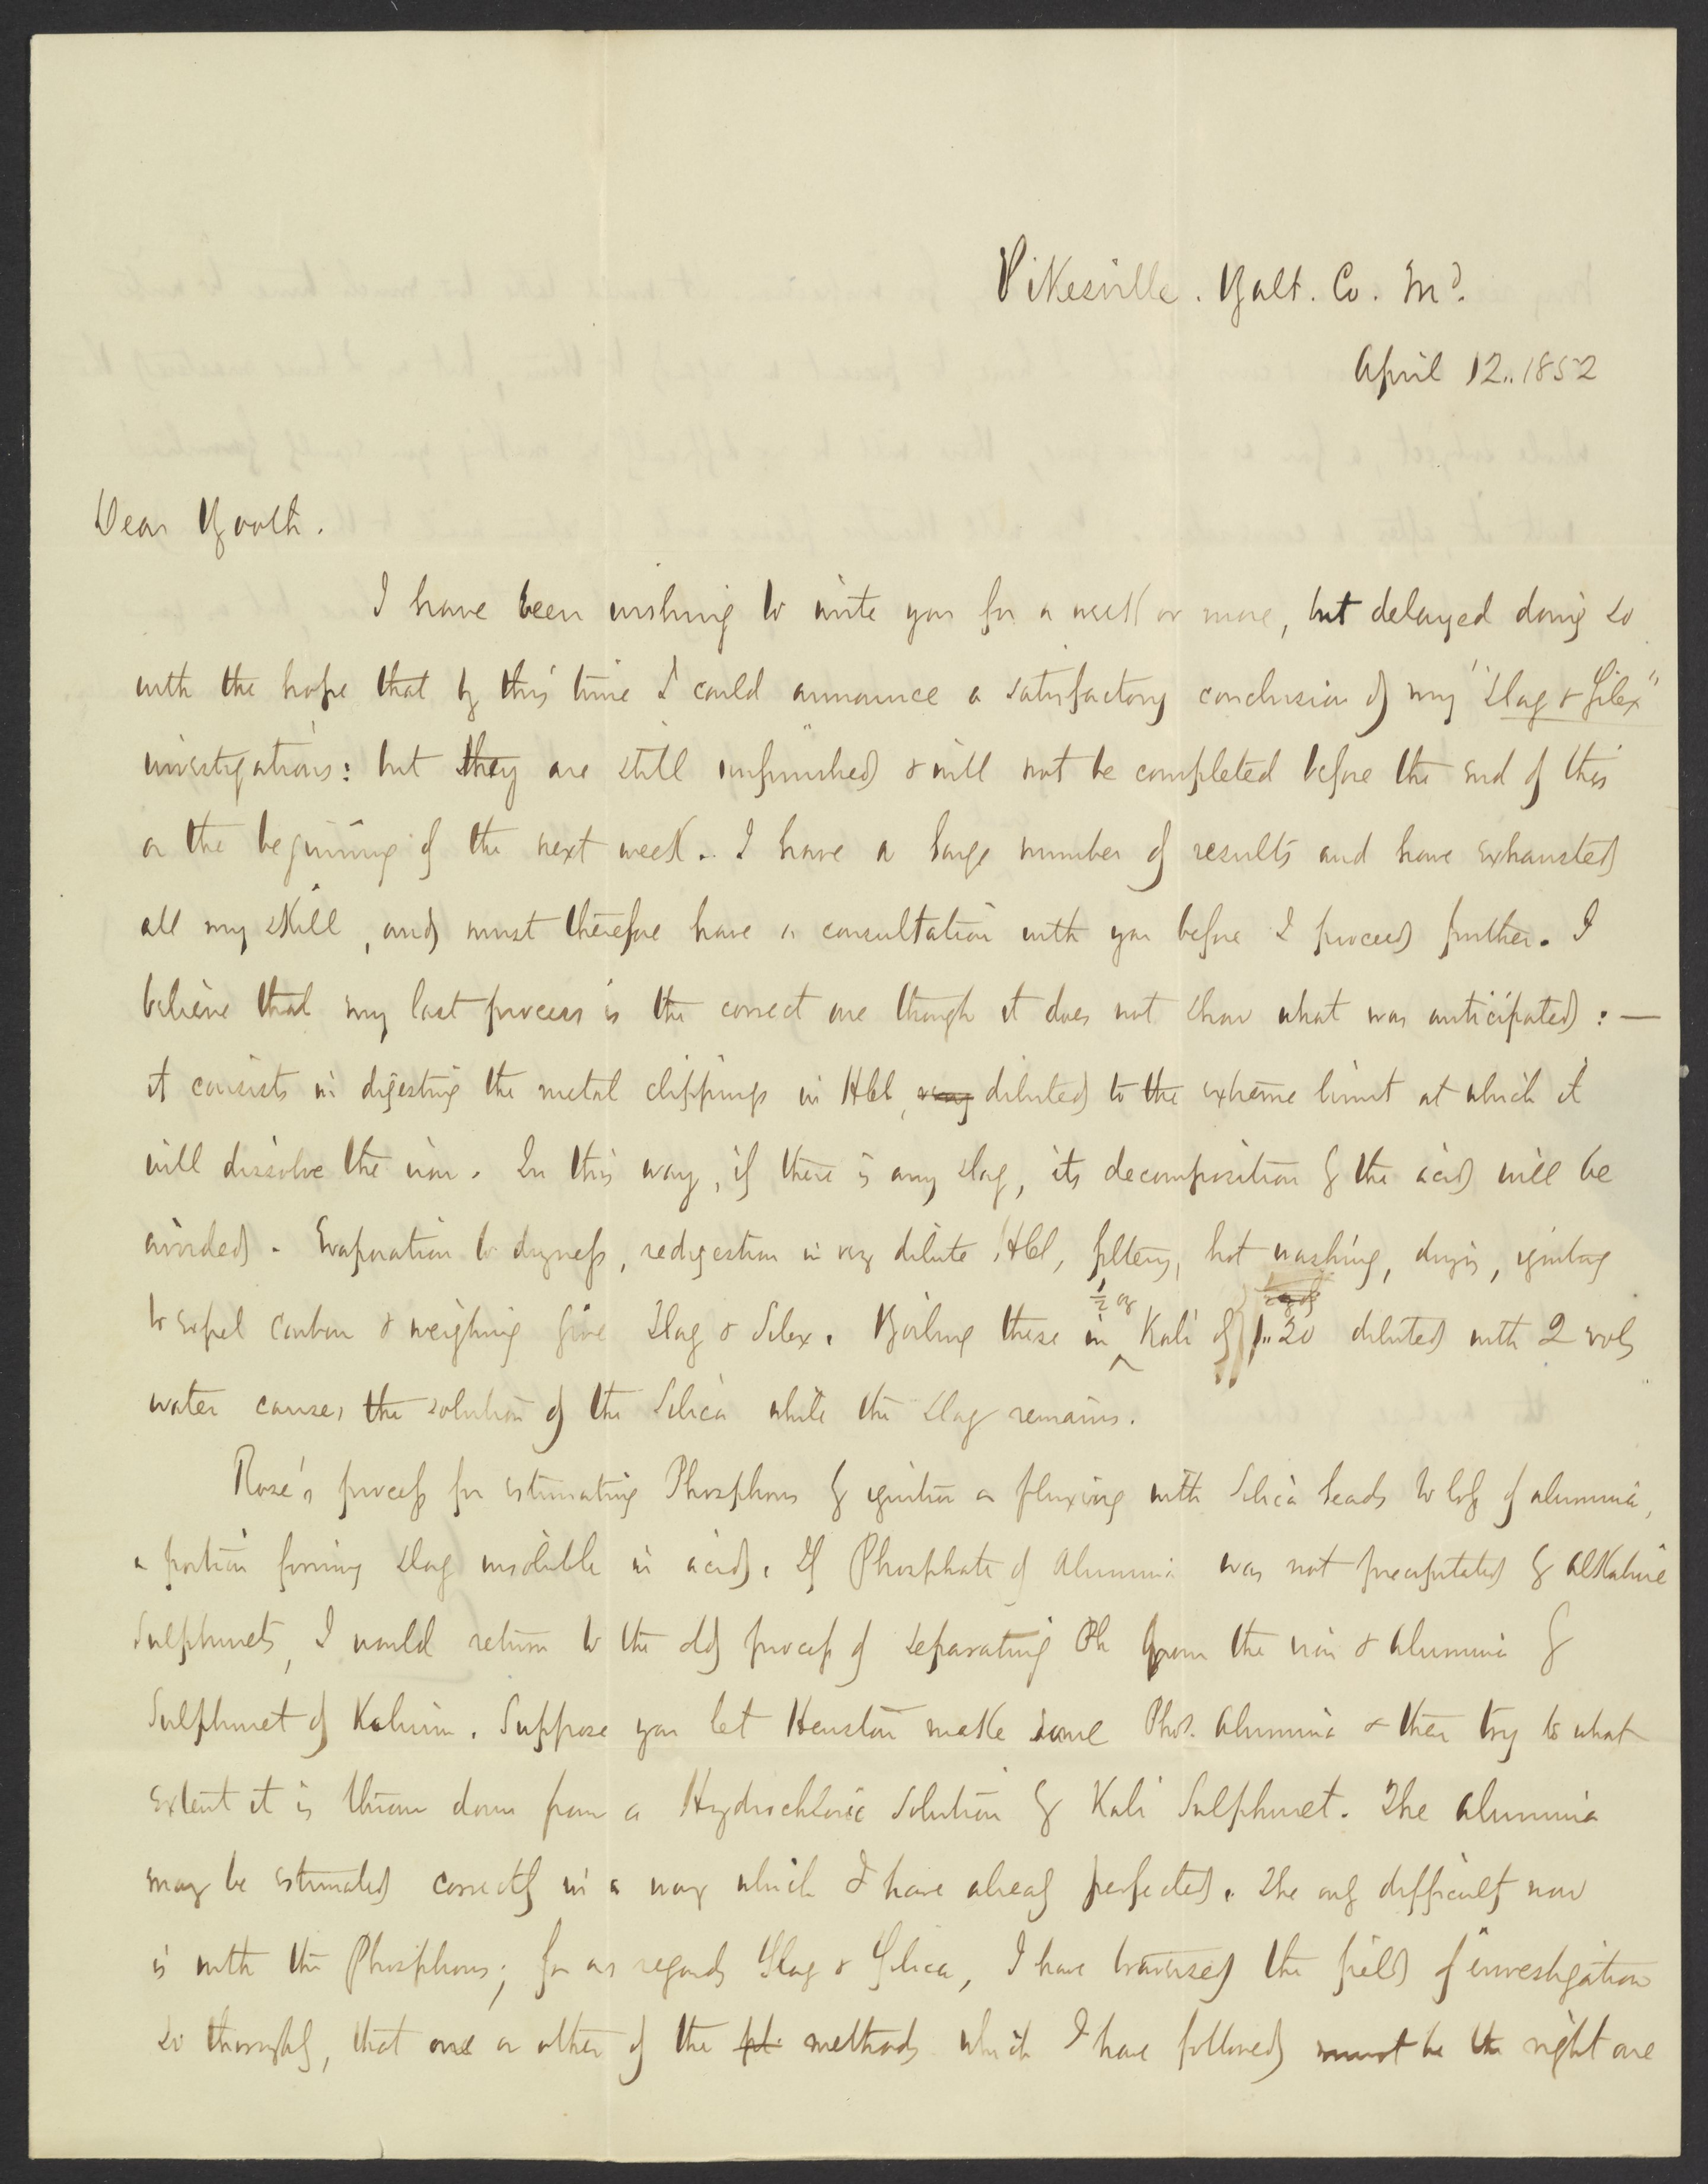 Pikesville. Balt. Co. Md.
April 12.. 1852
Dear Booth.
I have been wishing to write you for a week or more, but delayed doing so
with the hope that by this time I could announce a satisfactory conclusion of my "Slag & Silex"
investigations: but they are still unfinished & will not be completed before the end of this
or the beginning of the next week. I have a large number of results and have exhausted
all my skill, and must therefore have a consultation with you before I proceed further. I
believe that my last process is the correct one though it does not show what was anticipated: —
it consists in digesting the metal clippings in HCl, very diluted to the extreme limit at which it
will dissolve the iron. In this way, if there is any slag, its decomposition by the acid will be
avoided. Evaporation to dryness, redigestion in very dilute HCl, filterg, hot washing, dryig, ignitng
to expel carbon & weighing give Slag & Silex. Boiling these in ½ oz Kali of 1..20 diluted with 2 vols
water causes the solution of the Silica while the slag remains.
Rose's process for estimating Phosphorus by ignition or fluxing with Silica leads to loss of alumina,
a portion forming slag insoluble in acids. If Phosphate of Alumina was not precipitated by alkaline
Sulphurets, I would return to the old process of separating Ph from the iron & alumina by
Sulphuret of Kalium. Suppose you let Heuston make some Phos. Alumina & then try to what
extent it is thrown down from a Hydrochloric Solution by Kali Sulphuret. The alumina
may be estimated correctly in a way which I have already perfected. The only difficulty now
is with the Phosphorus; for as regards Slag & Silica, I have traversed the field of investigation
so thoroughly, that one or other of the methods which I have followed must be the right one